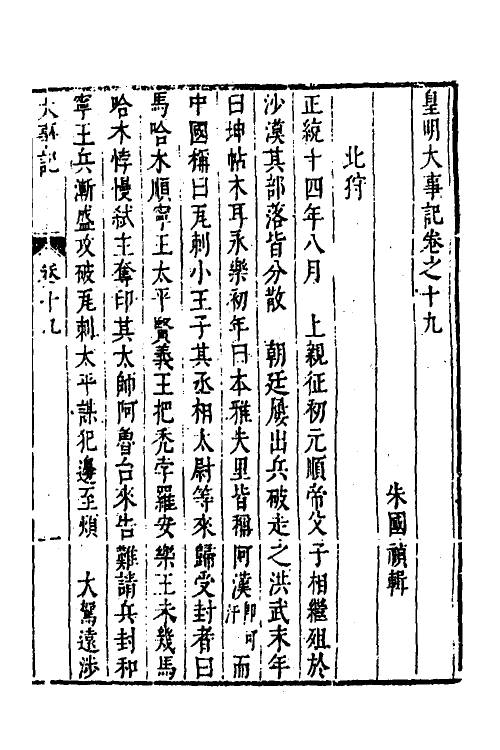 皇明大事記卷之十九
朱國禎輯
北狩
正統十四年八月　上親征初元順帝父子相繼殂於
沙漠其部落皆分散　朝廷屢出兵破走之洪武末年
曰坤帖木耳永樂初年曰本雅失里皆稱阿漢卽可汗而
中國稱曰瓦剌小王子其丞相太尉等來歸受封者曰
馬哈木順寧王太平賢義王把禿孛羅安樂王未幾馬
哈木悖慢弑主奪印其太師阿魯台來告難請兵封和
寧王兵漸盛攻破瓦剌太平謀犯邊至煩　大駕遠涉
大事記　卷十九　一